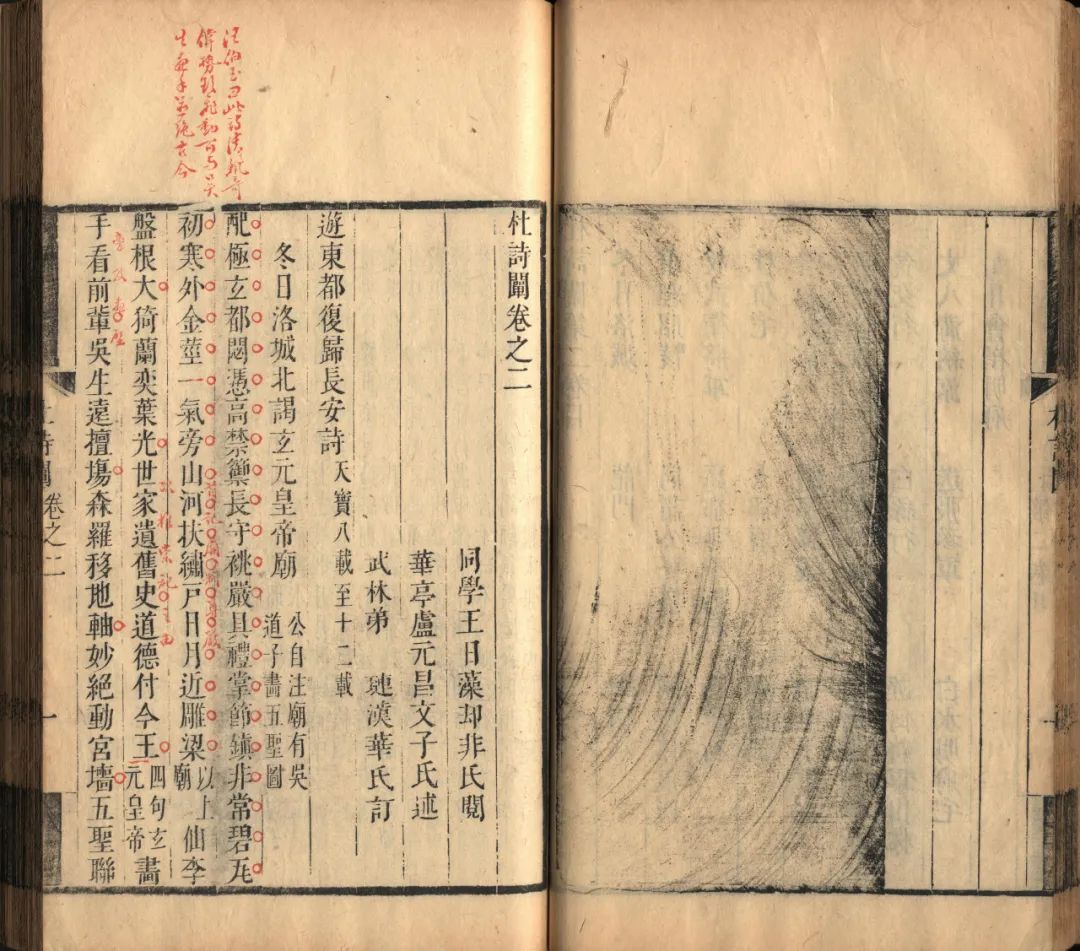 杜詩闡卷之二
同學王日藻却非氏閱
華亭盧元昌文子氏述
武林弟　璉漢華氏訂
遊東都復歸長安詩天寶八載至十二載
冬日洛城北謁玄元皇帝廟公自注廟有吳道子畫五聖圖
配極玄都閟憑高禁籞長守祧嚴具禮掌節鎮非常碧瓦
初寒外金莖一氣旁山河扶繡戶日月近雕梁以上廟仙李
盤根大猗蘭奕葉光世家遺舊史道德付今王四句玄元皇帝畫
手看前輩吳生遠擅塲森羅移地軸妙絕動宮墻五聖聯
杜詩闡卷之二　一
汪伯玉曰此詩清奇
偉飛動可与吳
生畫手並絕古今
首記廟制尊嚴
次推崇祀之由
杜詩闡